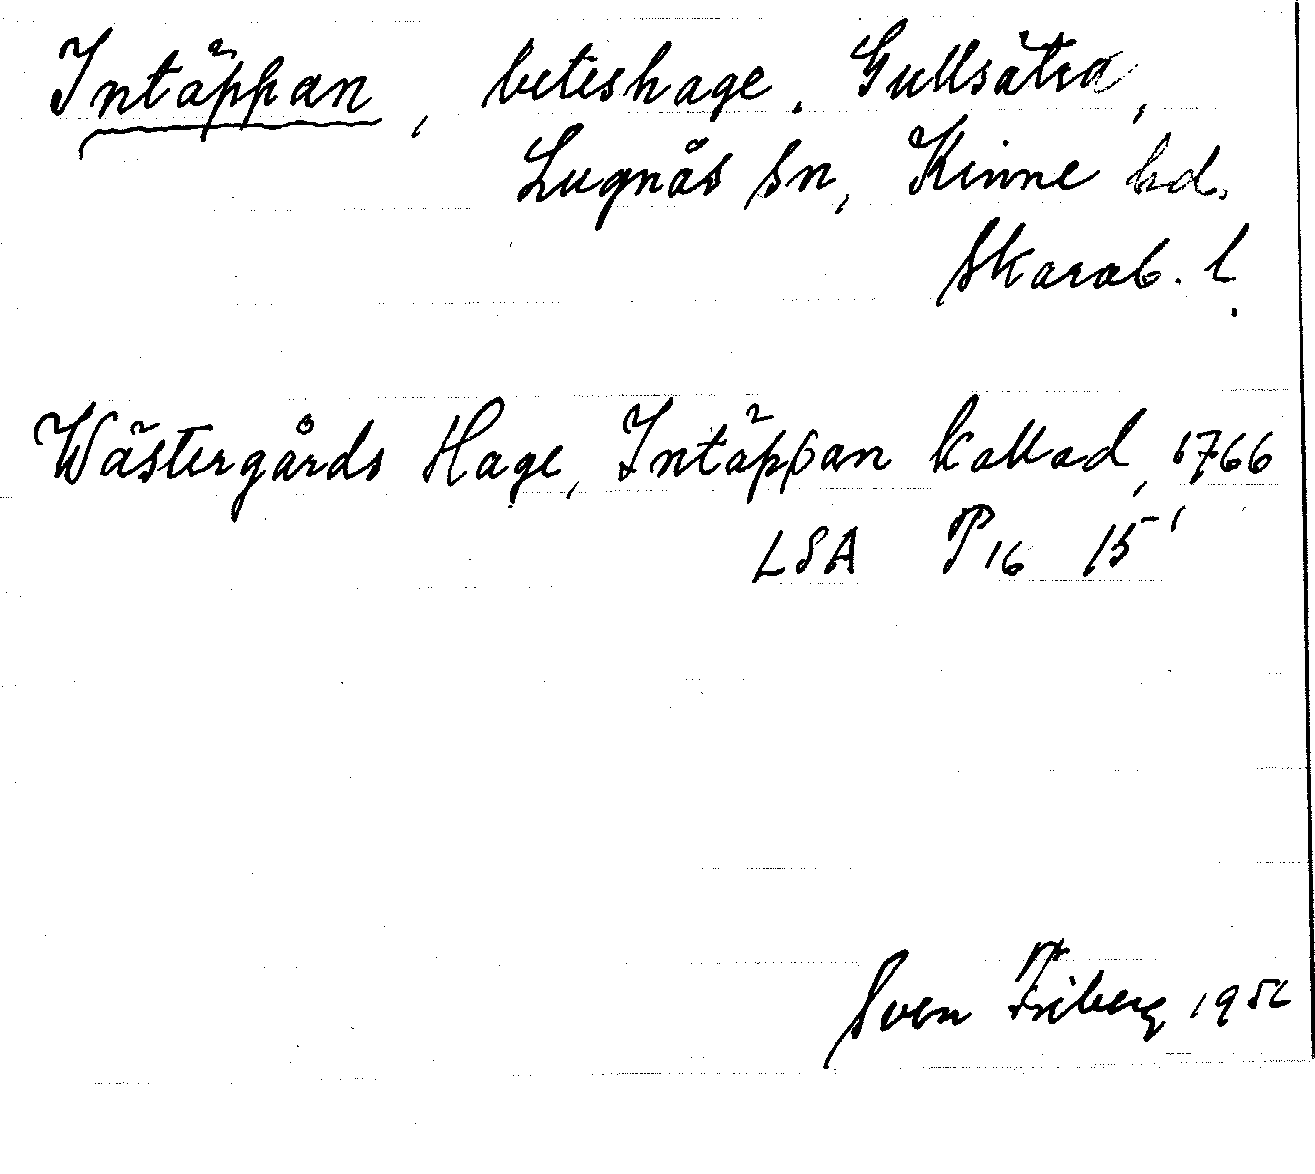 Intäppan, beteshage. Gullsätra,
Lugnås sn, Kinne hd.
Skarab. l.
Wästergårds Hage, Intäppan kallad, 1766
LSA P16 15'
Sven Friberg